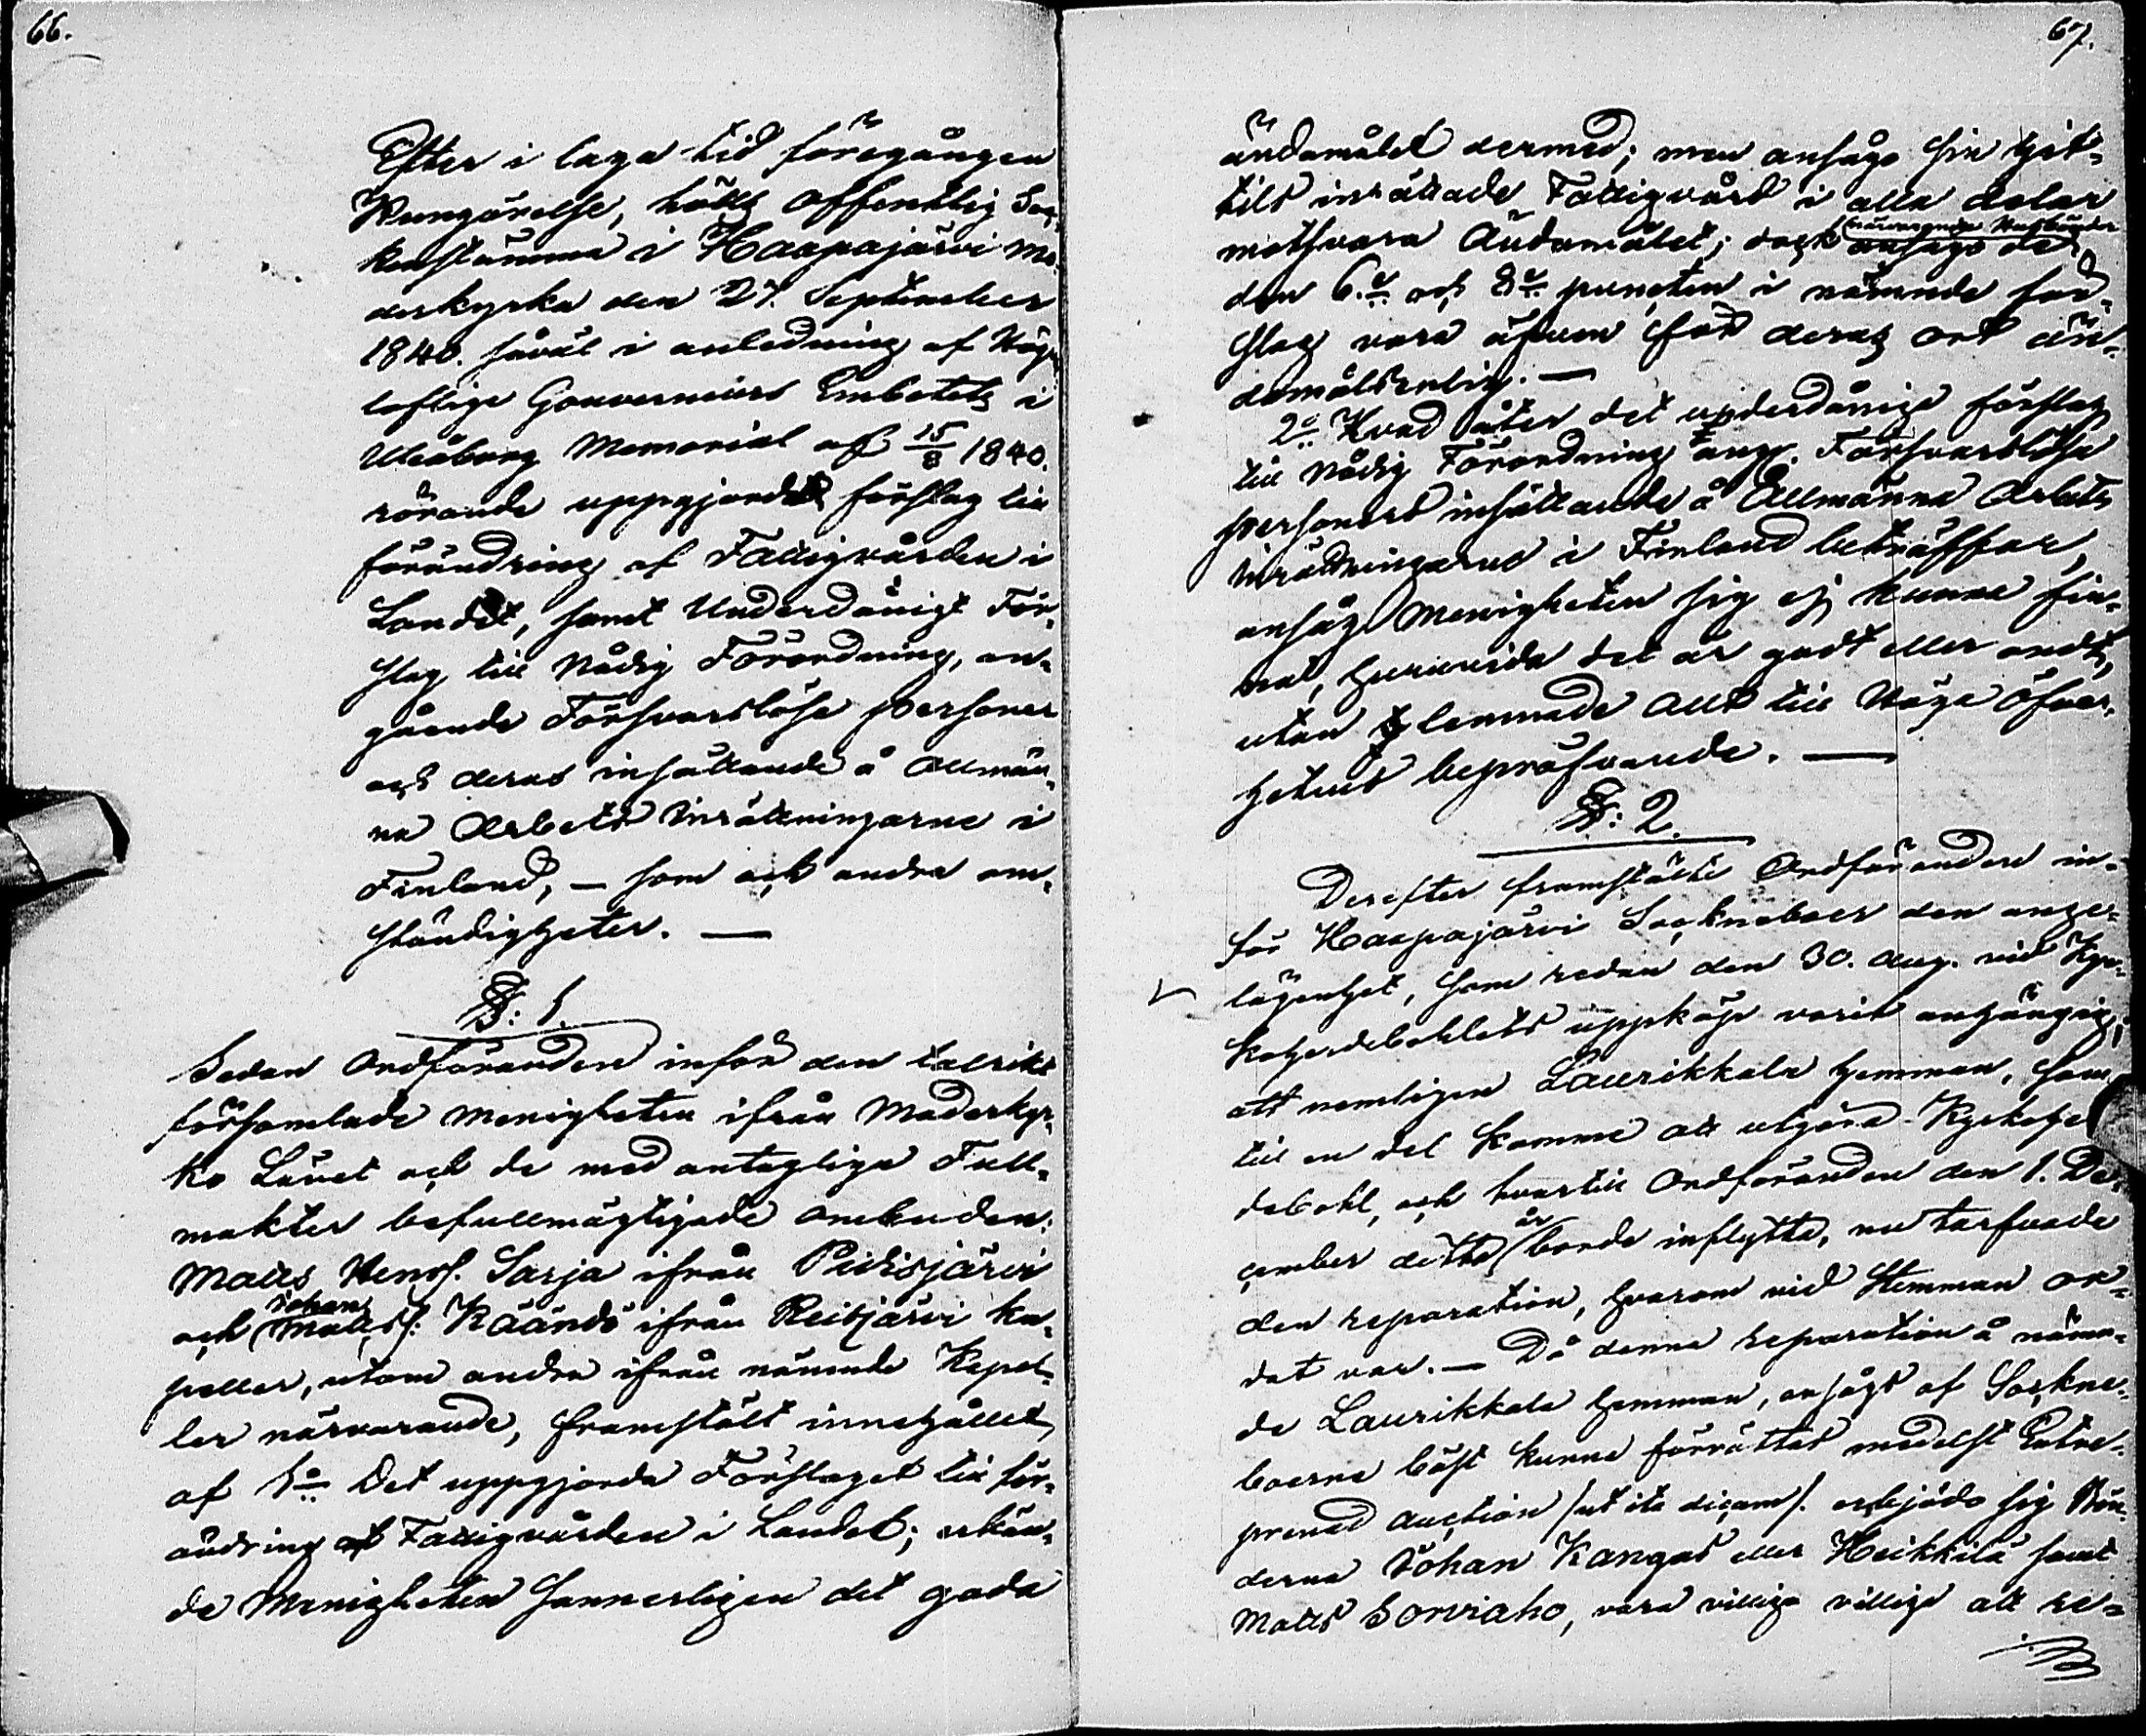 66.
Efter i laga tid föregången
Kungörelse, hölls offentlig Soc-
kenstämma i Haapajärvi Mo-
derkyrka den 27. September
1840. såväl i anledning af Höga
loflige Gouverneurs Embetets i
Uleåborg Memorial af 15/8 1840.
rörande uppgjordt förslag till
förändring af Fattigvården i
Landet, samt Underdånigt För-
slag till Nådig Förordning, an-
gående Försvarslöse personer
och deras insättande å Allmän-
na Arbets Inrättningarne i
Finland, — som ock andra om-
ständigheter. —
§: 1.
Sedan Ordföranden inför den talrikt
församlade Menigheten ifrån Moderkyr-
ko Länet och de med antagliga Full-
makter befullmägtigade ombuden:
Matts Henrs. Sarja ifrån Pidisjärvi
och Johan Matts s: Käändö ifrån Reisjärvi ka-
peller, utom andra ifrån nämnde Kapel-
ler närvarande, framstält innehållet
af 1o Det uppgjorda Förslaget till för-
ändring af Fattigvården i Landet; erkän-
de Menigheten sannerligen det goda
67.
ändamålet dermed; men ansågo sin hit-
tills inrättade Fattigvård i alla delar
motsvara Ändamålet; dock ansågo de närvarande Husbönder
den 6.te och 8de puncten i nämnde för-
slag vara äfven för deras ort än-
damålsenlig. —
2o Hvad åter det underdånige förslag
till Nådig Förordning ang. Försvarslösa
personers insättande å Allmänna Arbets
inrättningarne i Finland beträffar,
ansåg Menigheten sig ej kunna fin-
na, huruvida det är godt eller ondt,
utan lemnade allt till Höga Öfver-
hetens bepröfvande. —
§: 2.
Derefter framstälte Ordföranden in-
för Haapajärvi Sockneboer den ange-
lägenhet, som redan den 30. Aug. vid Kyr-
koherdebohlets uppköp varit anhängig,
att nemligen Laurikkala hemman, som
till en del komme att utgöra Kyrkoher
debohl, och hvartill Ordföranden den 1. De-
cember detta år borde inflytta, nu tarfvade
den reparation, hvarom vid Stemman or-
dat var. — Då denna reparation å nämn-
de Laurikkala hemman, ansågs af Sockne-
boerne bäst kunna förrättas medelst Entre-
prenad auction /ut ita dicam/. erbjödo sig Bön-
derna Johan Kangas eller Heikkilä samt
Matts Sorviaho, vara villiga villige att re-